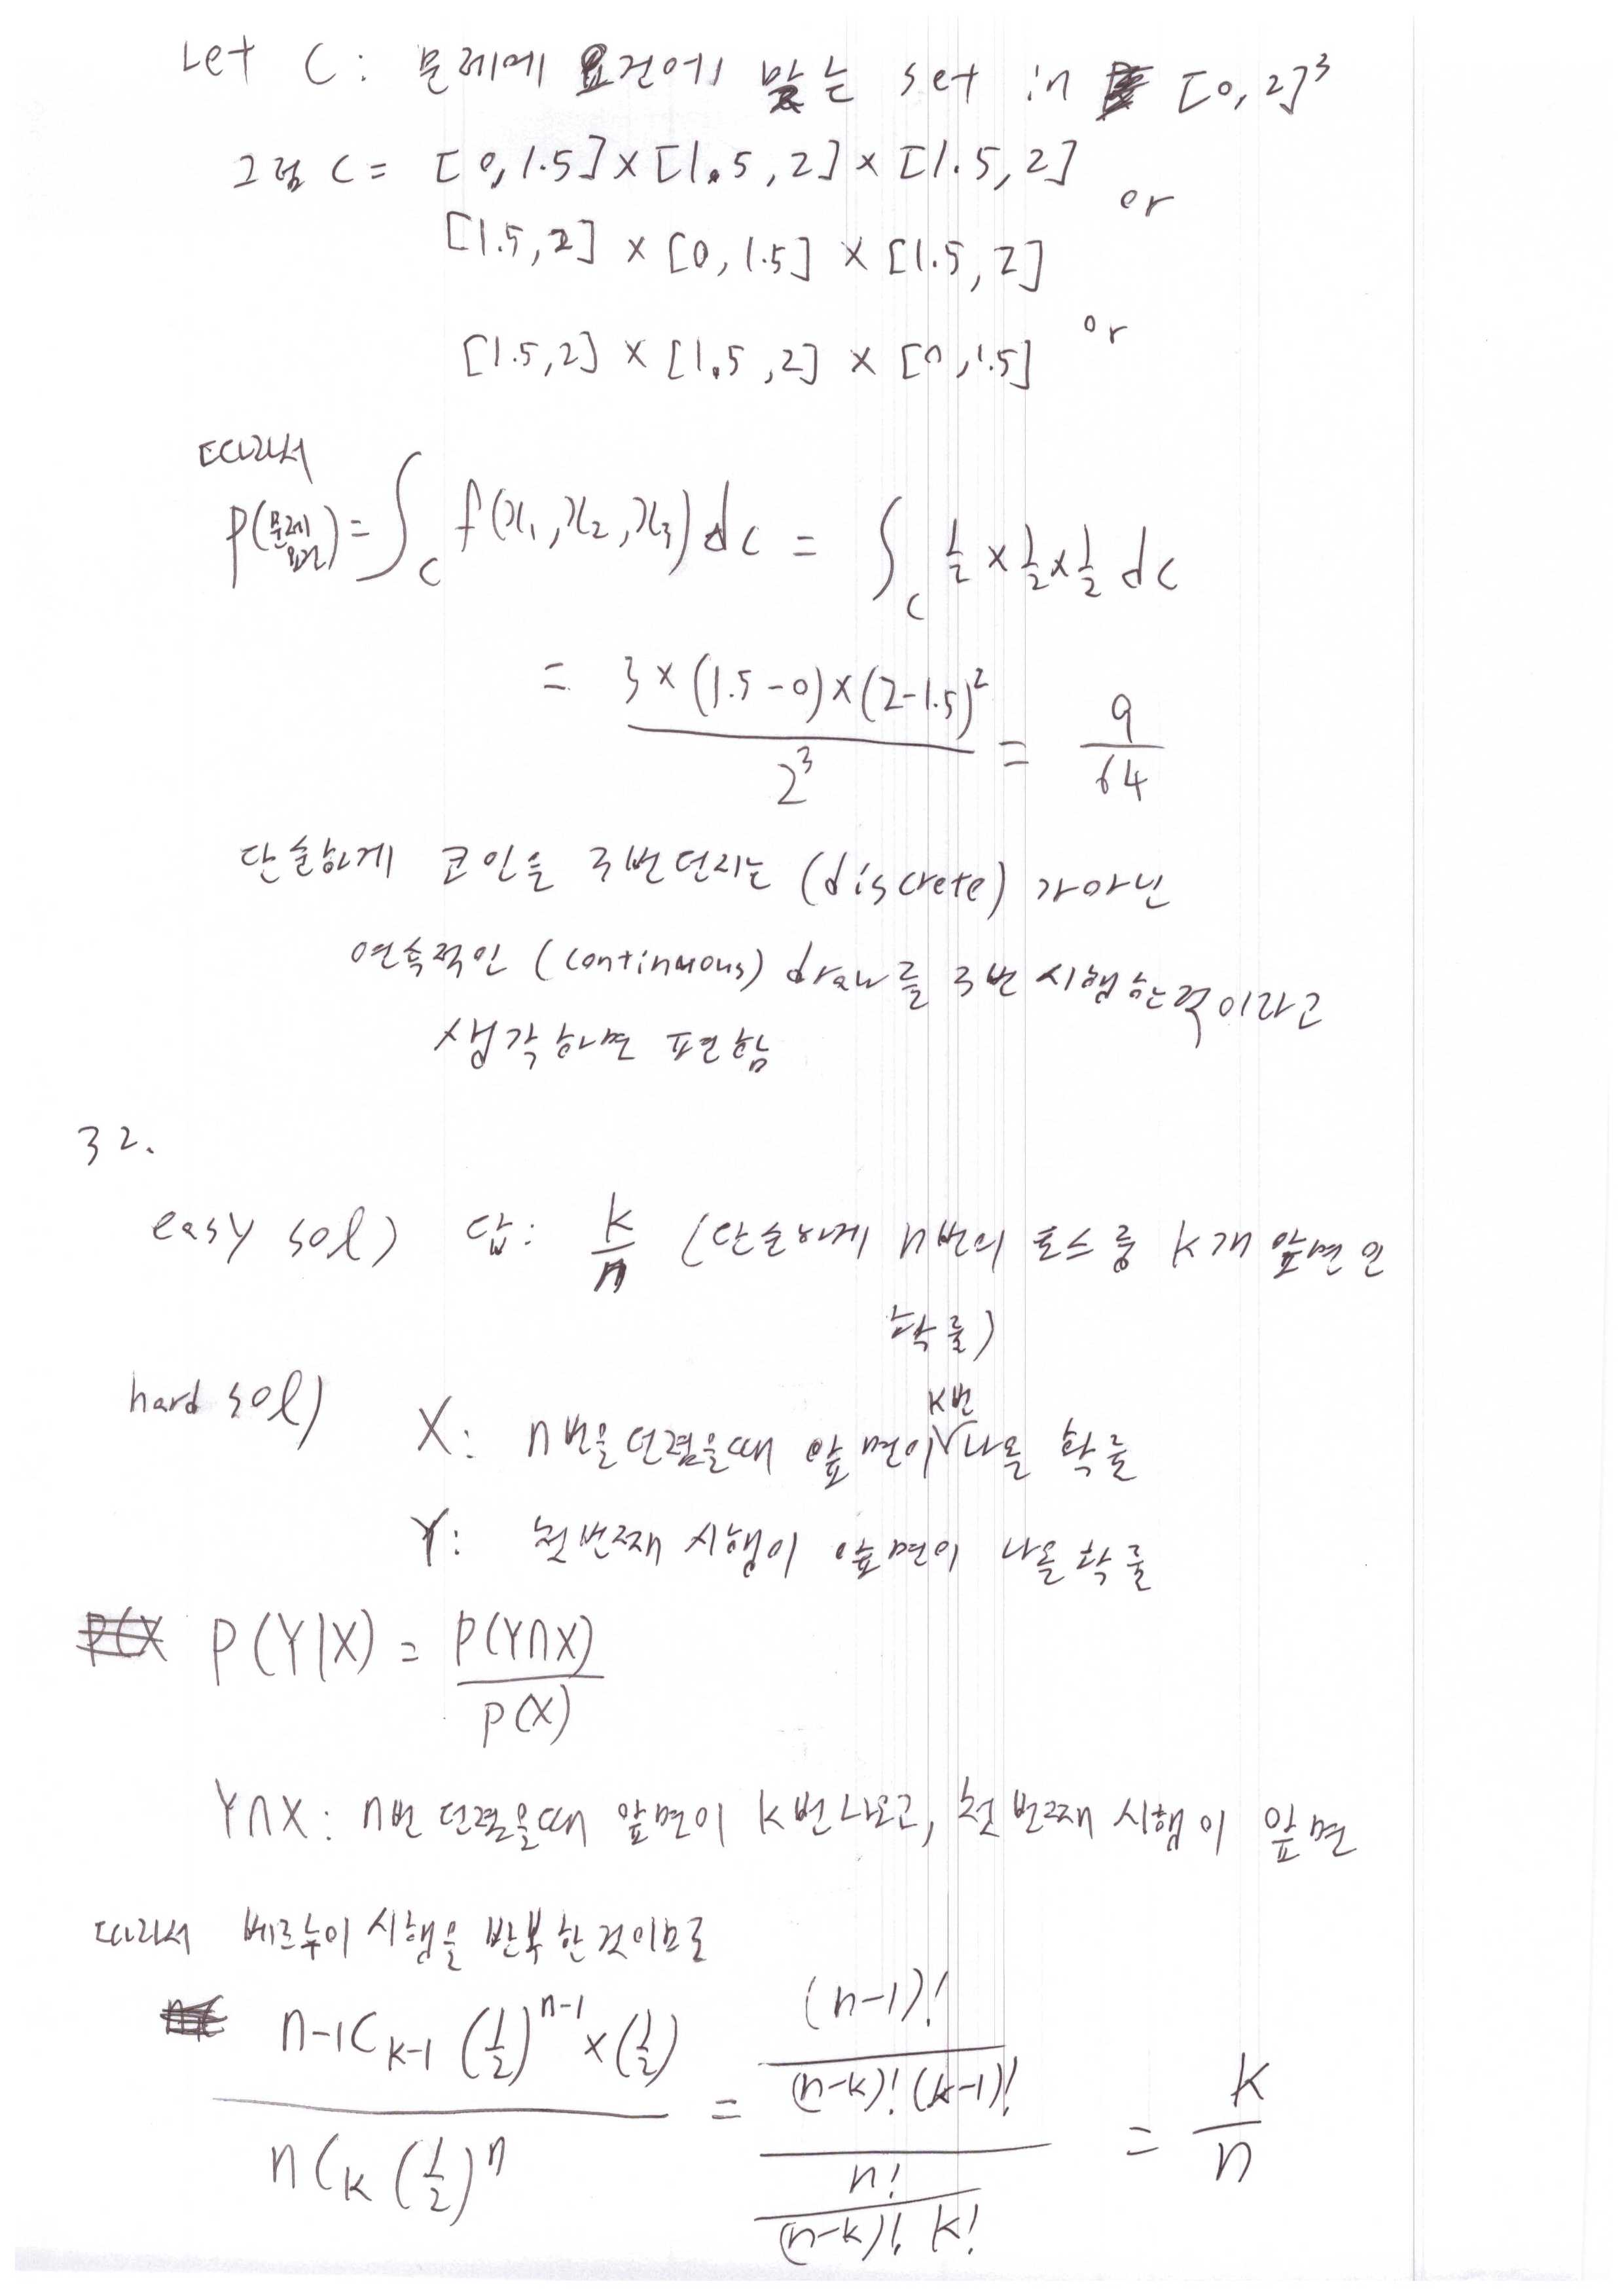 Let C: 문제에 요건에 맞는 set in [0, 2]³
그럼 C = [0, 1.5] × [1.5, 2] × [1.5, 2]
or
[1.5, 2] × [0, 1.5] × [1.5, 2]
or
[1.5, 2] × [1.5, 2] × [0, 1.5]
따라서
P(문제 요건) = ∫_C f(x₁, x₂, x₃) dc = ∫_C 1/2 × 1/2 × 1/2 dc
= 3 × (1.5 - 0) × (2 - 1.5)² / 2³ = 9/64
단순하게 코인을 3번 던지는 (discrete) 가 아닌
연속적인 (continuous) draw를 3번 시행하는 것이라고
생각하면 편함
32.
easy sol) 답: k/n (단순하게 n번의 토스 중 k개 앞면인
확률)
hard sol) X: n번을 던졌을때 앞면이 k번 나올 확률
Y: 첫번째 시행이 앞면이 나올 확률
P(Y|X) = P(Y∩X) / P(X)
Y∩X: n번 던졌을때 앞면이 k번 나오고, 첫번째 시행이 앞면
따라서 베르누이 시행을 반복한 것이므로
n-1Ck-1 (1/2)^(n-1) × (1/2) / nCk (1/2)^n = ((n-1)! / (n-k)! (k-1)!) / (n! / (n-k)! k!) = k/n